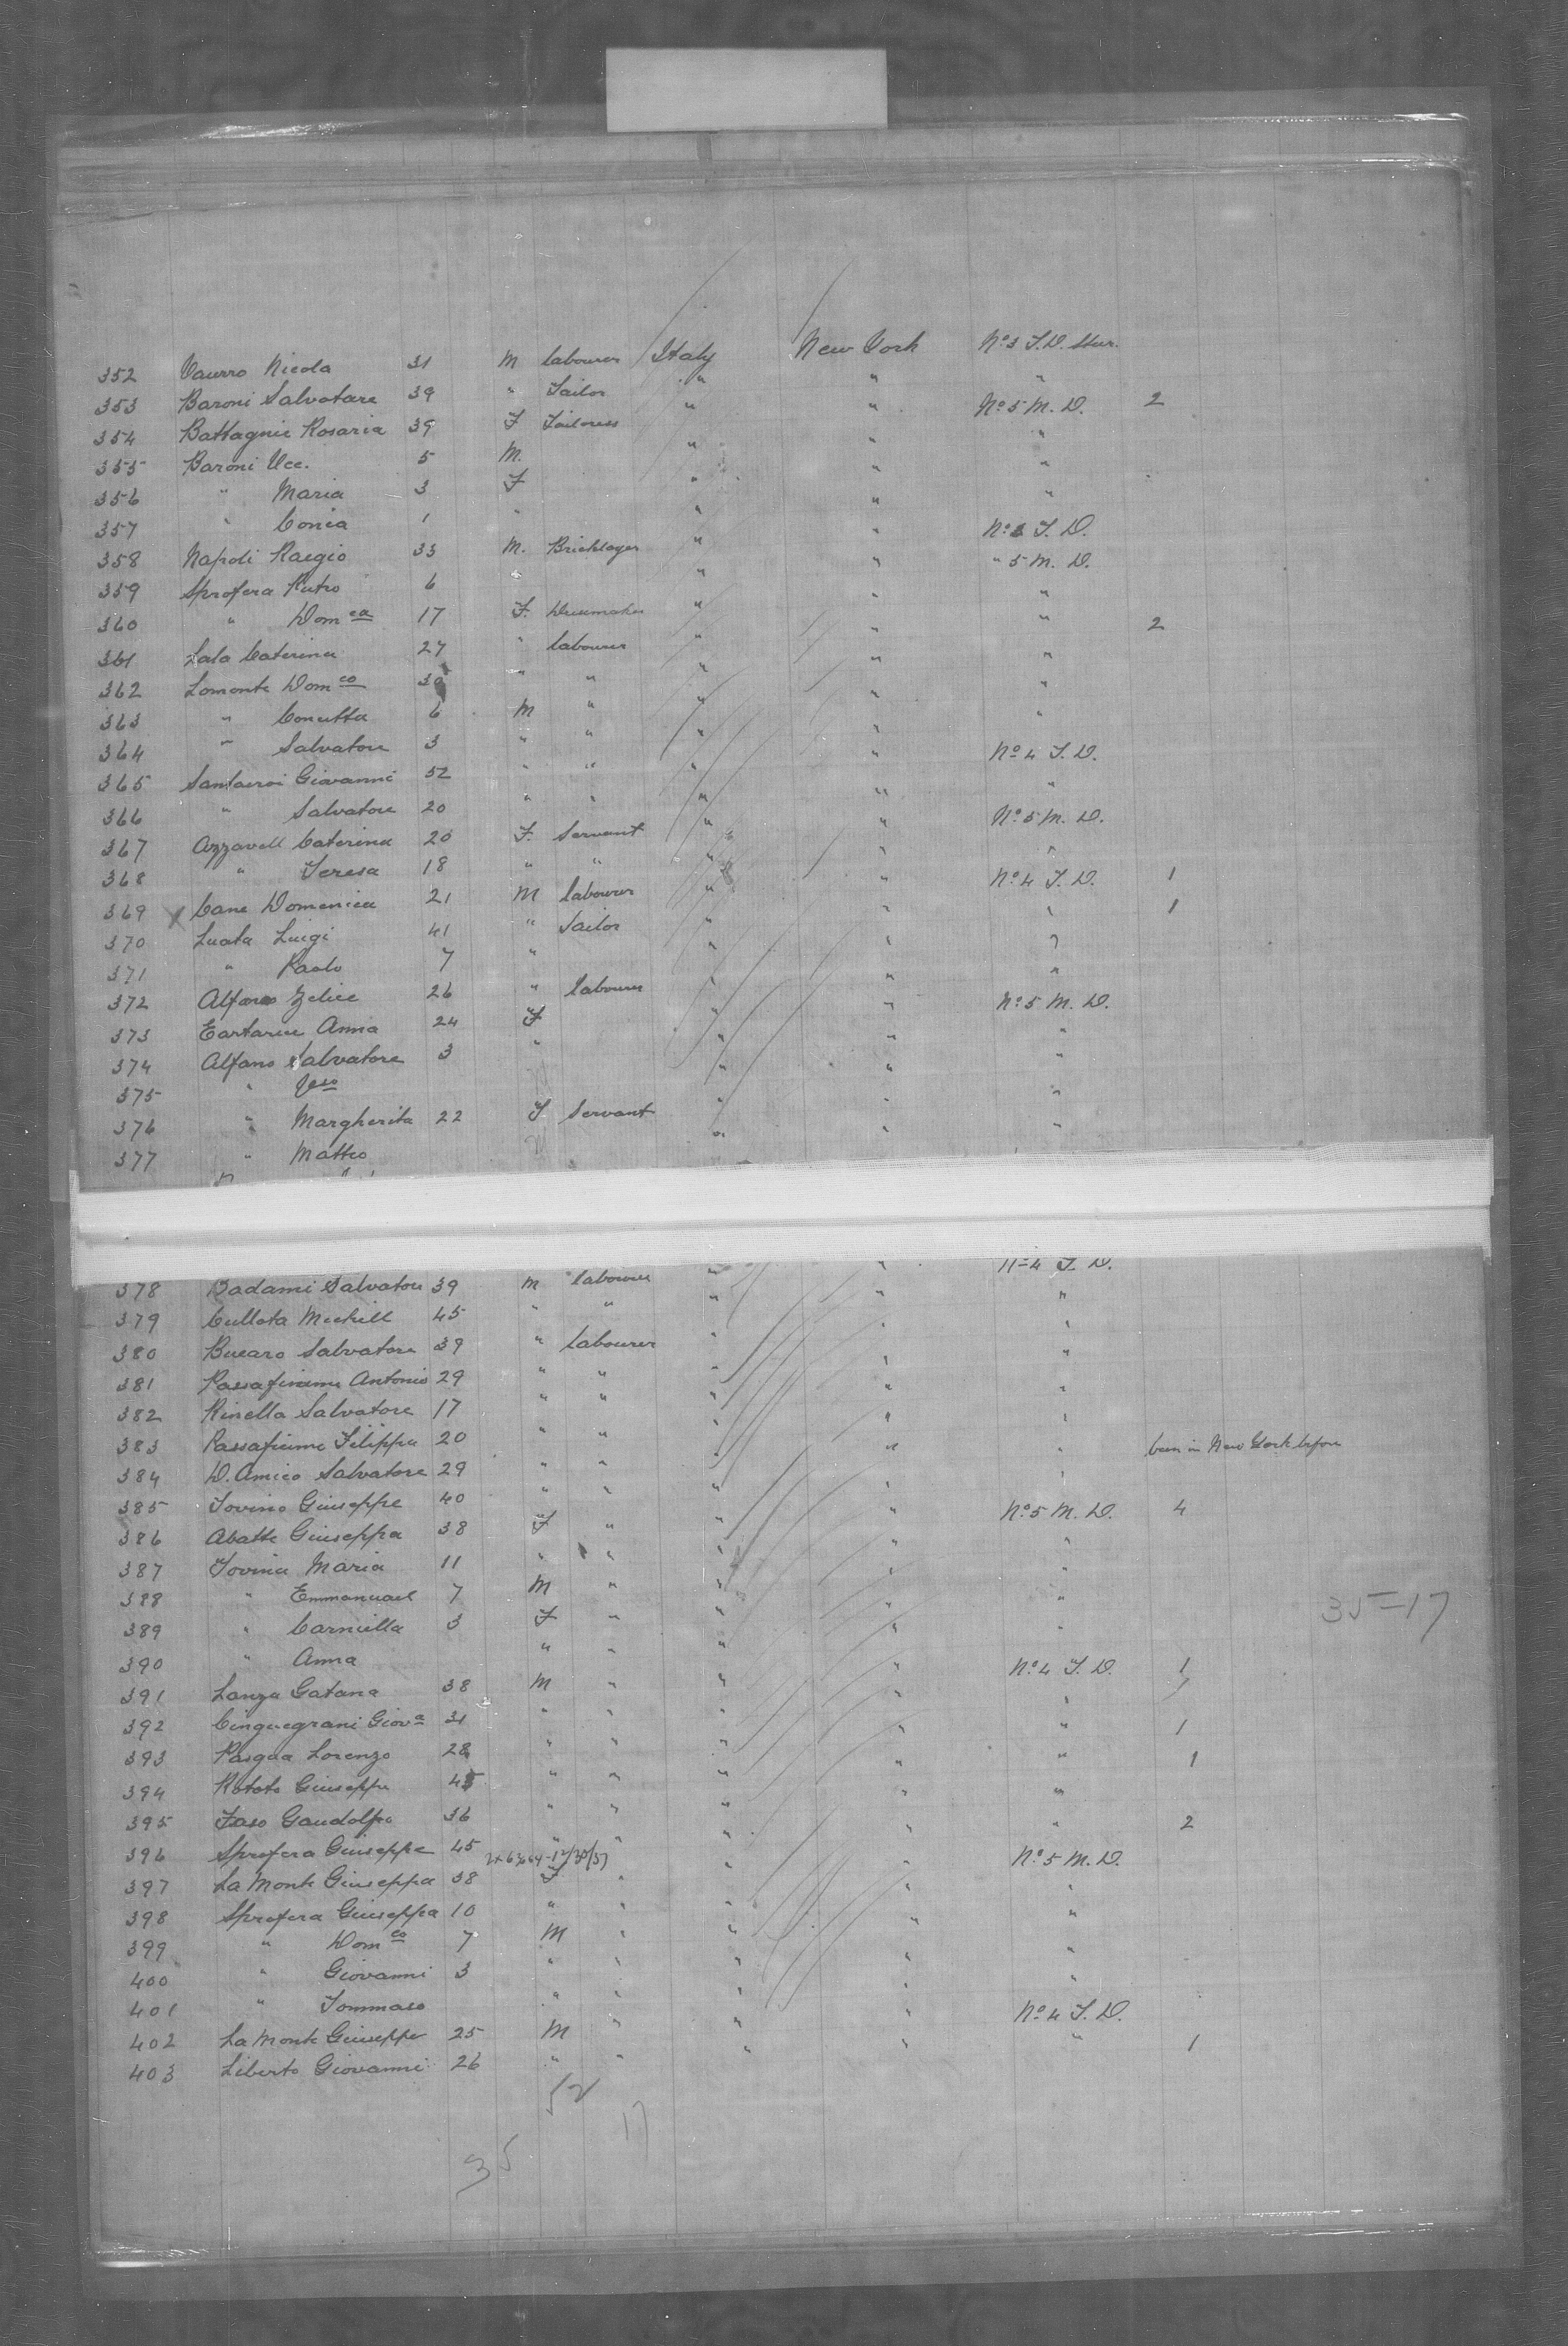 352 Vaurro Nicola 31 M labourer Italy New York No 3 T.D. Stur.
353 Baroni Salvatore 39 " Tailor " " "
354 Battagnie Rosaria 39 F Tailoress " " No 5 M. D. 2
355 Baroni Vcc. 5 M. " " "
356 " Maria 3 F " " "
357 " Conia 1 " " " "
358 Napoli Raegio 33 M. Bricklayer " " No 3 T. D.
359 Sprofera Pietro 6 " " " " 5 M. D.
360 " Domca 17 F. Dressmaker " " "
361 Lala Caterina 27 " labourer " " " 2
362 Lomonte Domco 30 " " " " "
363 " Concetta 6 M " " " "
364 " Salvatore 3 " " " " "
365 Santacroi Giovanni 52 " " " " No 4 T. D.
366 " Salvatore 20 " " " " "
367 Azzavell Caterina 20 F. Servant " " No 5 M. D.
368 " Teresa 18 " " " " "
369 X Cane Domenica 21 M labourer " " No 4 T. D. 1
370 Luala Luigi 41 " Tailor " " " 1
371 " Paolo 7 " " " "
372 Alfano Felice 26 " labourer " " "
373 Eartarue Anna 24 F " " No 5 M. D.
374 Alfano Salvatore 3 " " " "
375 " " " "
376 " Margherita 22 F Servant " " "
377 " Matteo " " "
378 Badami Salvatore 39 M labourer " " No 4 T. D.
379 Cullota Michill 45 " " " " "
380 Bucaro Salvatore 39 " labourer " " "
381 Passafiume Antonio 29 " " " " "
382 Rinella Salvatore 17 " " " " "
383 Passafiume Filippa 20 " " " " "
384 D. Amico Salvatore 29 " " " " " been in New York before
385 Iovino Giuseppe 40 " " " " "
386 Abatte Giuseppa 38 F " " " No 5 M. D. 4
387 Iovina Maria 11 " " " " "
388 " Emmanuael 7 M " " " "
389 " Carmella 3 F " " " " 35=17
390 " Anna " " " " "
391 Lanza Gatana 38 M " " " No 4 T. D. 1
392 Cinquegrani Giova 31 " " " " " 1
393 Pasqua Lorenzo 28 " " " " " 1
394 Rototo Giuseppe 45 " " " " " 1
395 Faso Gandolfo 36 " " " " "
396 Sprofera Giuseppe 45 " " " " " 2
397 La Monte Giuseppa 38 F " " " No 5 M. D.
398 Sprofera Giuseppa 10 " " " " "
399 " Domco 7 M " " " "
400 " Giovanni 3 " " " " "
401 " Tommaso " " " " "
402 La Monte Giuseppe 25 M " " " No 4 T. D.
403 Liberto Giovanni 26 " " " " " 1
52
17
35